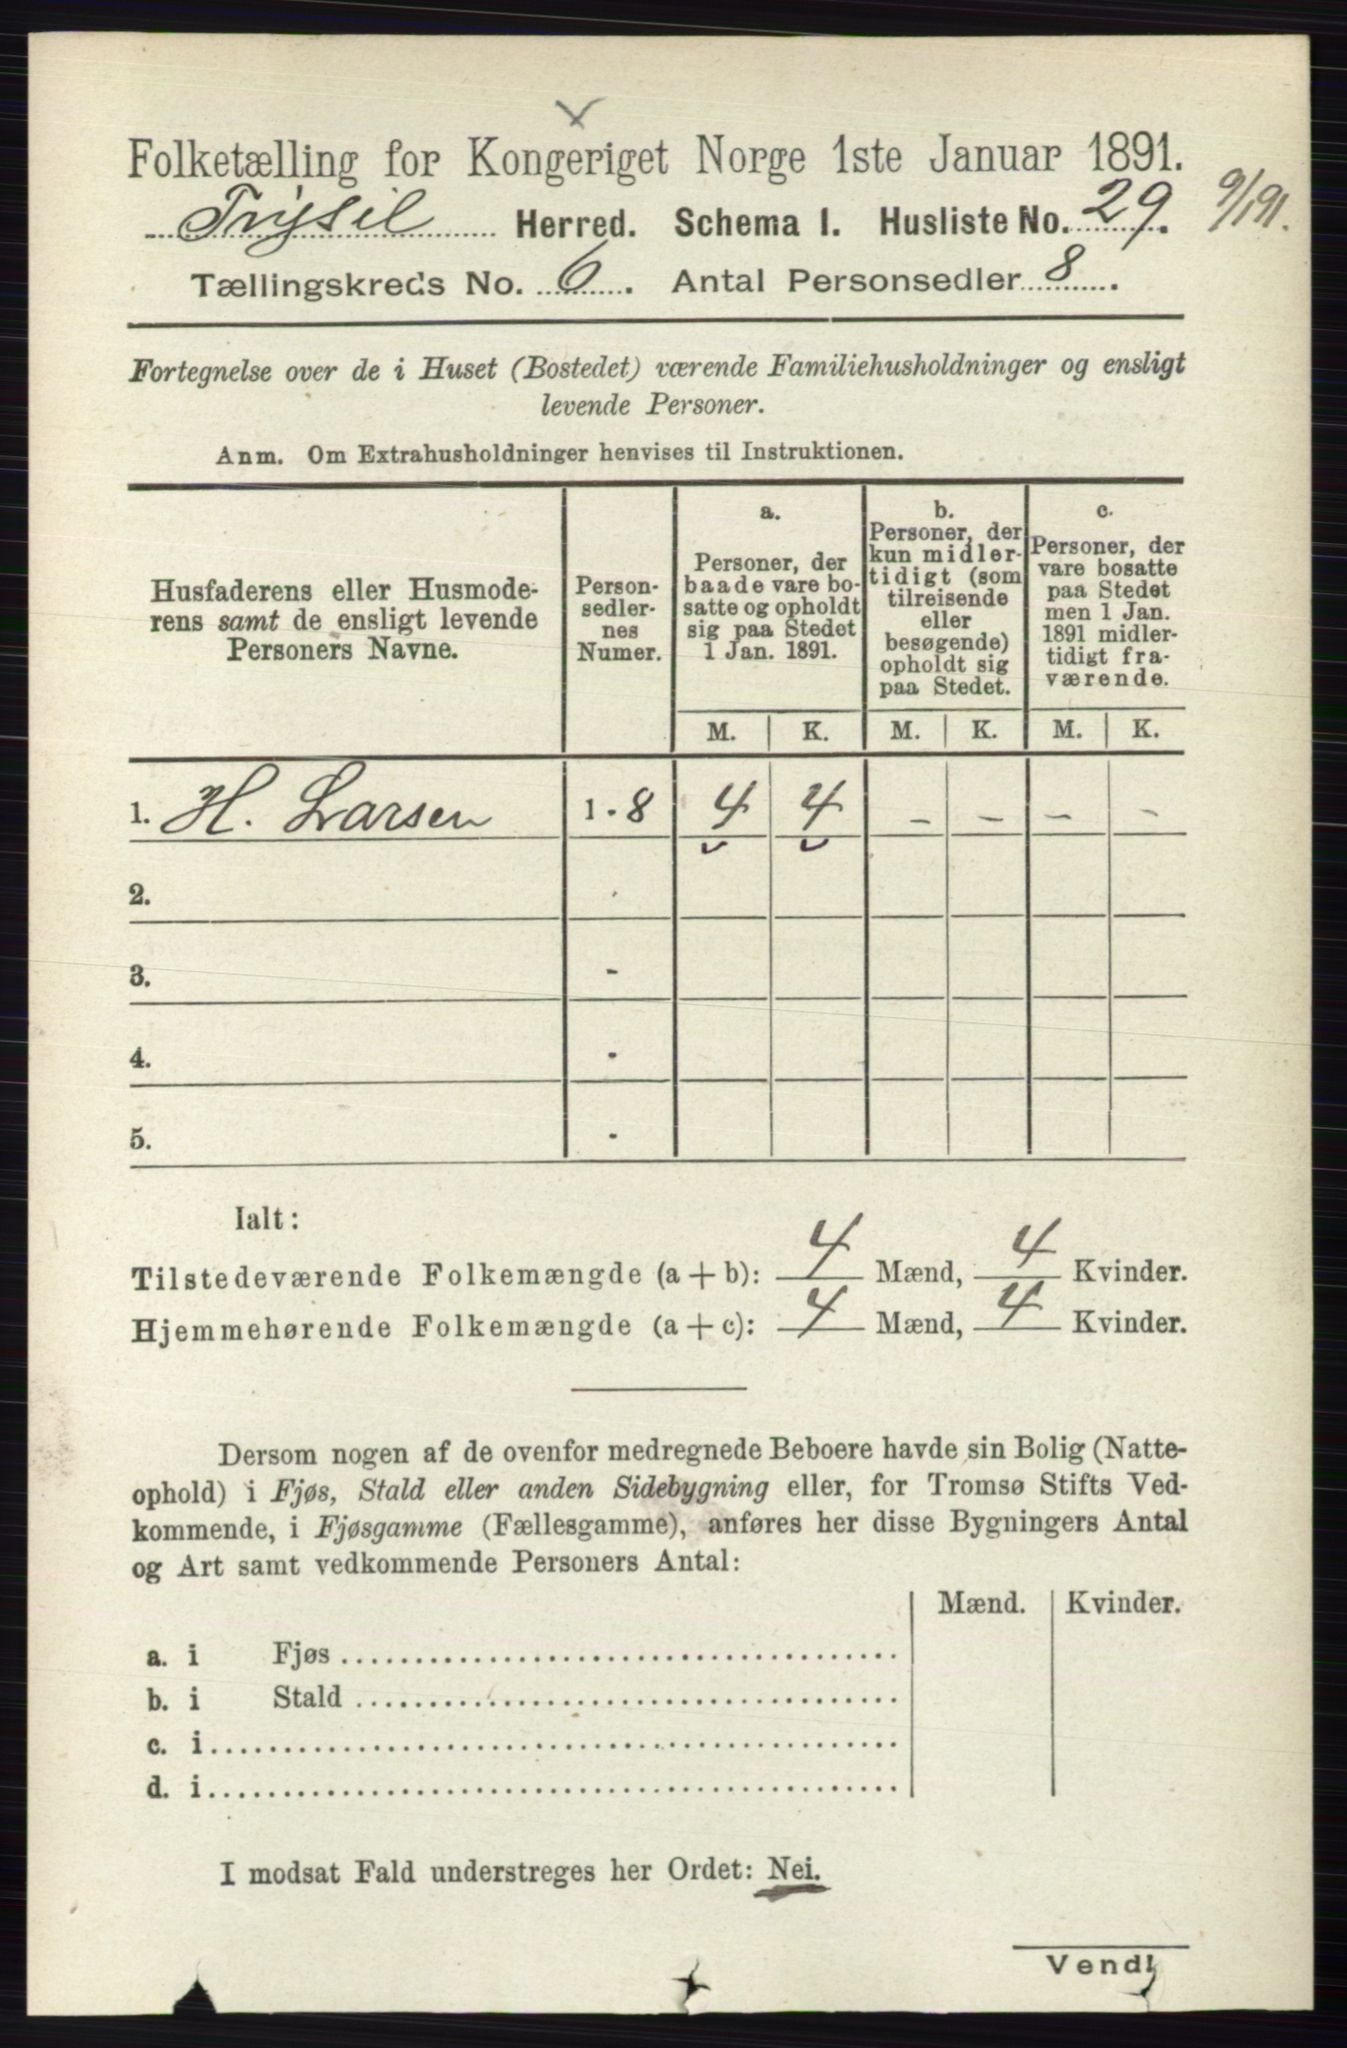 Folketælling for Kongeriget Norge 1ste Januar 1891.
Trysil Herred. Schema I. Husliste No. 29.
9/1 91.
Tællingskreds No. 6. Antal Personsedler 8.
Fortegnelse over de i Huset (Bostedet) værende Familiehusholdninger og ensligt
levende Personer.
Anm. Om Extrahusholdninger henvises til Instruktionen.
Husfaderens eller Husmode-
rens samt de ensligt levende
Personers Navne.
Person-
sedler-
nes
Numer.
a.
Personer, der
baade vare bo-
satte og opholdt
sig paa Stedet
1 Jan. 1891.
b.
Personer, der
kun midler-
tidigt (som
tilreisende
eller
besøgende)
opholdt sig
paa Stedet.
c.
Personer, der
vare bosatte
paa Stedet
men 1 Jan.
1891 midler-
tidigt fra-
værende.
M. K. M. K. M. K.
1. H. Larsen 1 - 8 4 4 - - - -
2. -
3. -
4. -
5. -
Ialt:
Tilstedeværende Folkemængde (a + b): 4 Mænd, 4 Kvinder.
Hjemmehørende Folkemængde (a + c): 4 Mænd, 4 Kvinder.
Dersom nogen af de ovenfor medregnede Beboere havde sin Bolig (Natte-
ophold) i Fjøs, Stald eller anden Sidebygning eller, for Tromsø Stifts Ved-
kommende, i Fjøsgamme (Fællesgamme), anføres her disse Bygningers Antal
og Art samt vedkommende Personers Antal:
Mænd. Kvinder.
a. i Fjøs
b. i Stald
c. i
d. i
I modsat Fald understreges her Ordet: Nei.
Vend!